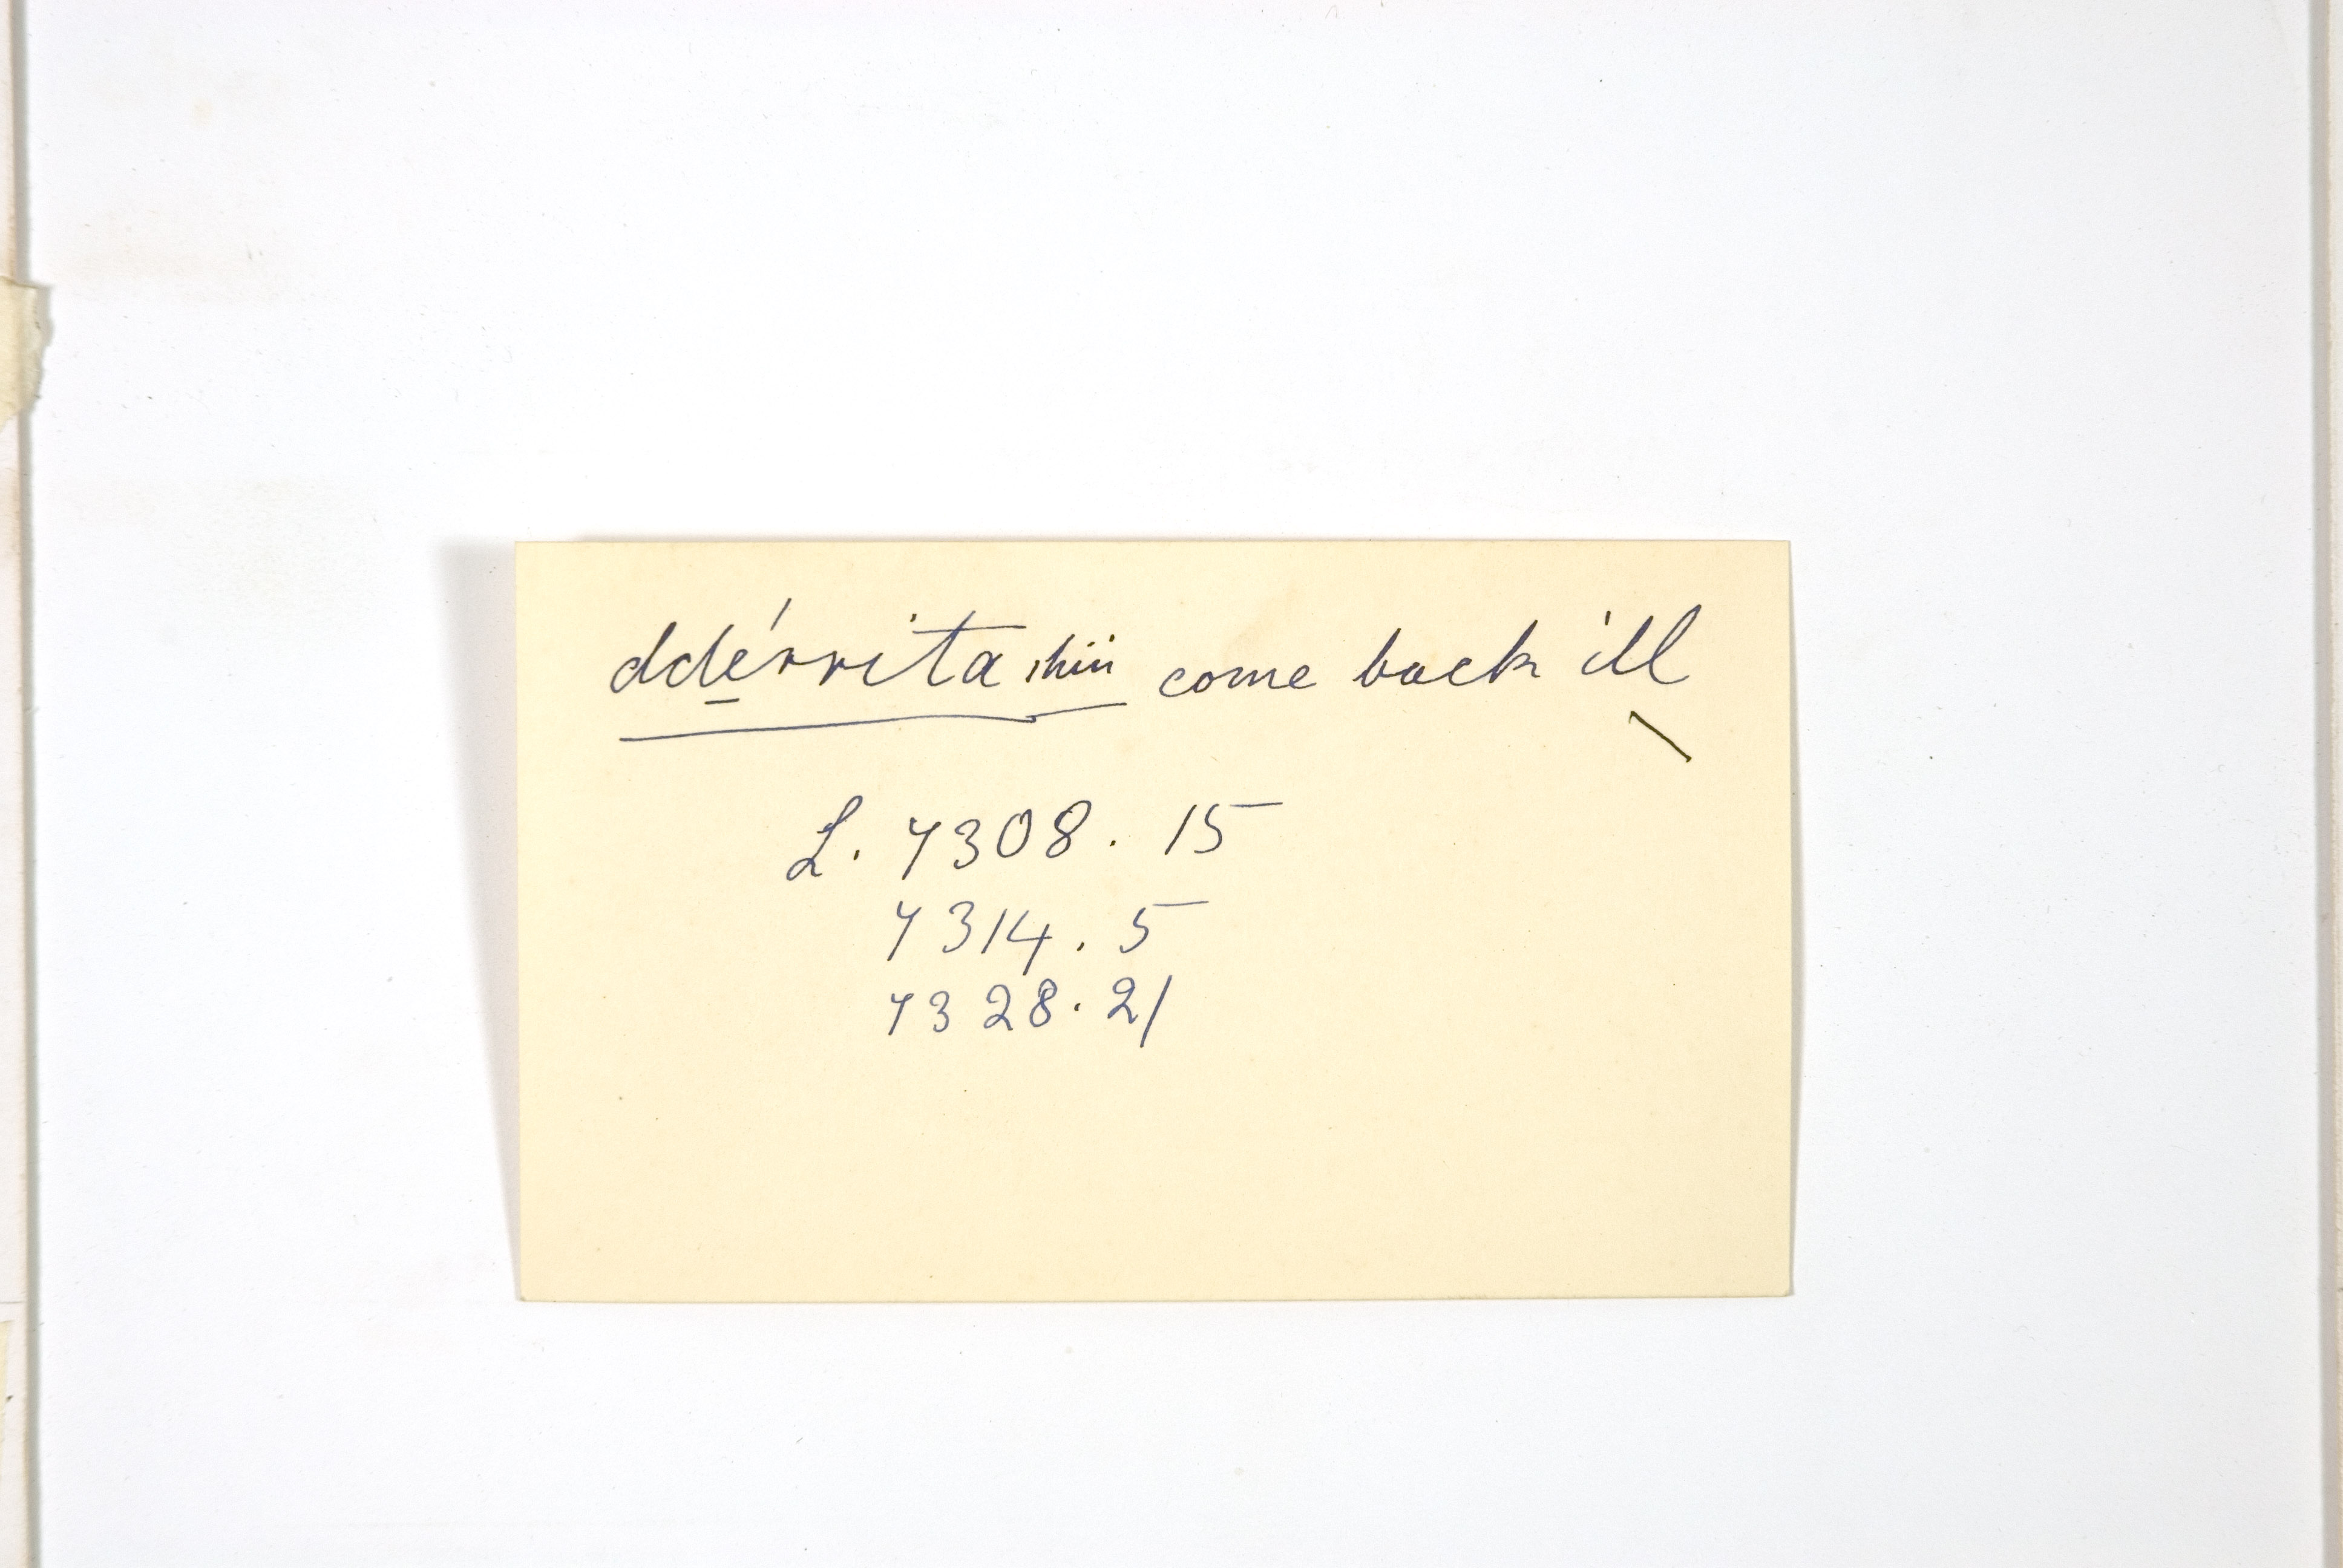 ddé̱rrita ıhiı come back ill
L. 7308. 15
7314. 5
7328. 21